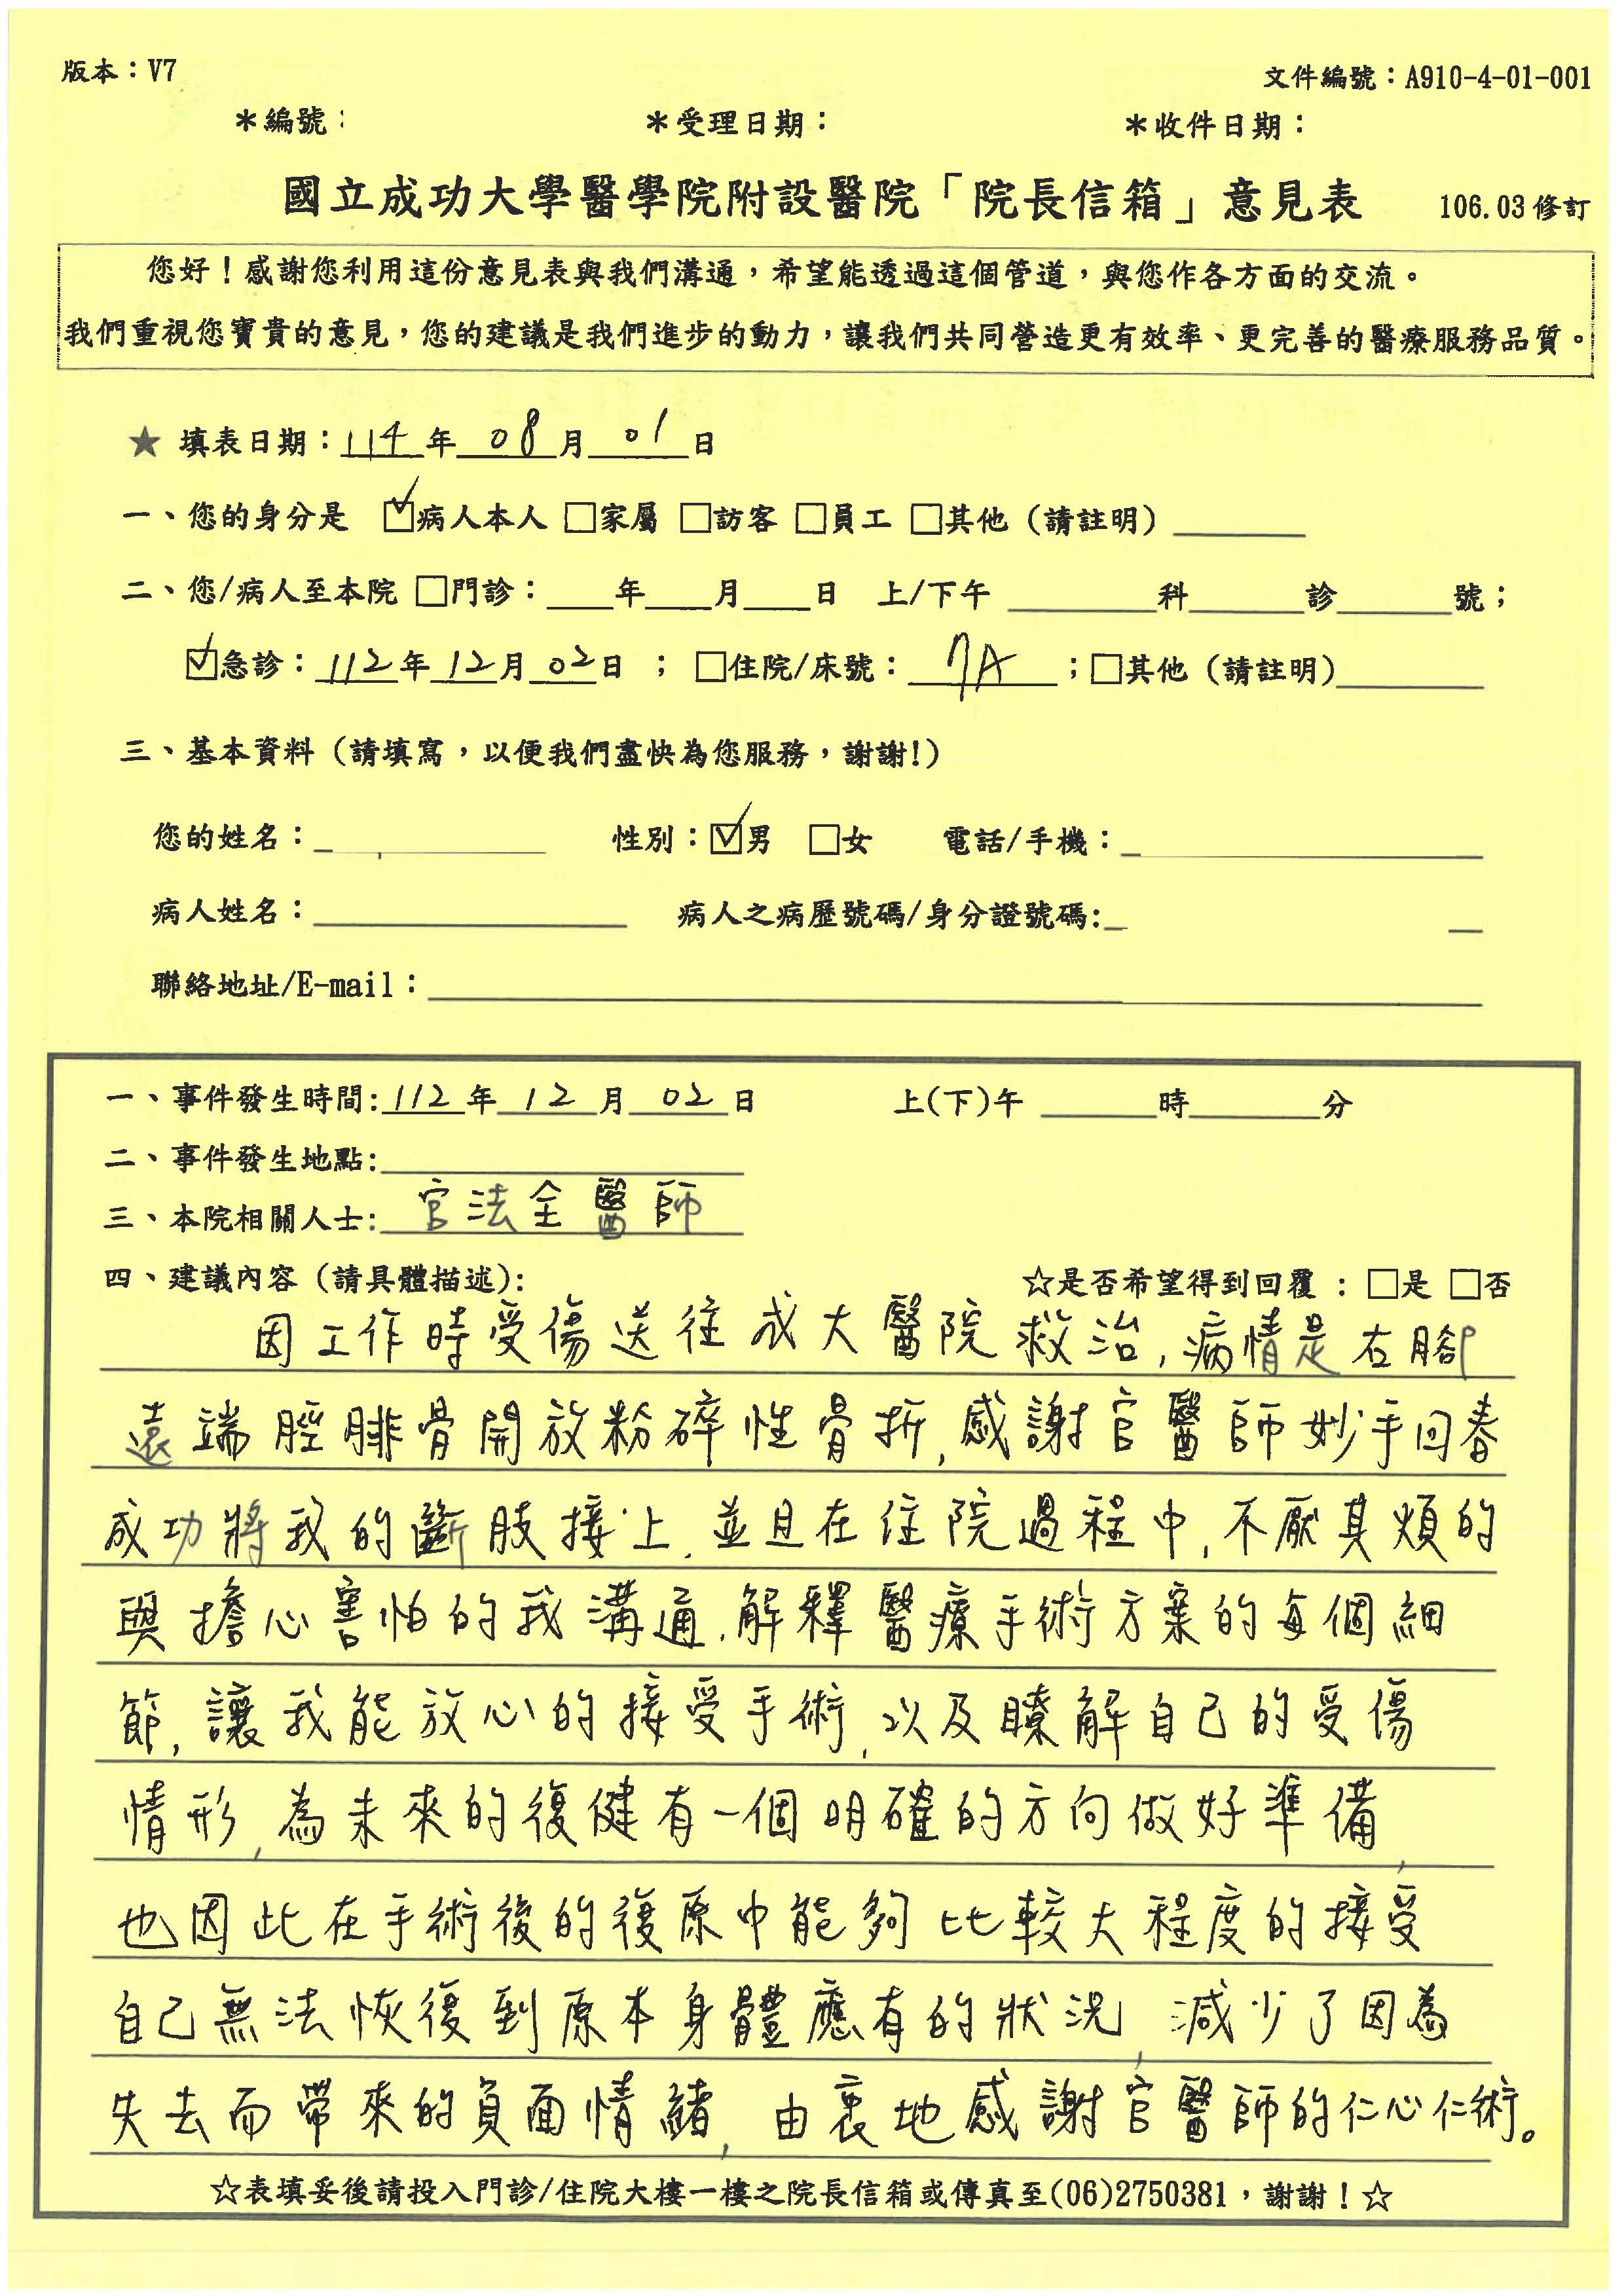 版本：V7
文件編號：A910-4-01-001
＊編號：
＊受理日期：
＊收件日期：
國立成功大學醫學院附設醫院「院長信箱」意見表 106.03修訂
您好！感謝您利用這份意見表與我們溝通，希望能透過這個管道，與您作各方面的交流。
我們重視您寶貴的意見，您的建議是我們進步的動力，讓我們共同營造更有效率、更完善的醫療服務品質。
★ 填表日期：114年 08月 01日
一、您的身分是 ☑病人本人 □家屬 □訪客 □員工 □其他（請註明）
二、您/病人至本院 □門診：___年___月___日 上/下午 ______科______診______號；
☑急診：112年12月02日 ；□住院/床號：7A；□其他（請註明）
三、基本資料（請填寫，以便我們盡快為您服務，謝謝!）
您的姓名： 性別：☑男 □女 電話/手機：
病人姓名： 病人之病歷號碼/身分證號碼:
聯絡地址/E-mail：
一、事件發生時間:112年12月02日 上(下)午 ______時______分
二、事件發生地點:
三、本院相關人士: 官法全醫師
四、建議內容（請具體描述）： ☆是否希望得到回覆 ：□是 □否
因工作時受傷送往成大醫院救治,病情是右腳
遠端脛腓骨開放粉碎性骨折,感謝官醫師妙手回春
成功將我的斷肢接上,並且在住院過程中,不厭其煩的
與擔心害怕的我溝通,解釋醫療手術方案的每個細
節,讓我能放心的接受手術,以及瞭解自己的受傷
情形,為未來的復健有一個明確的方向做好準備,
也因此在手術後的復原中能夠比較大程度的接受
自己無法恢復到原本身體應有的狀況,減少了因為
失去而帶來的負面情緒,由衷地感謝官醫師的仁心仁術。
☆表填妥後請投入門診/住院大樓一樓之院長信箱或傳真至(06)2750381，謝謝！☆